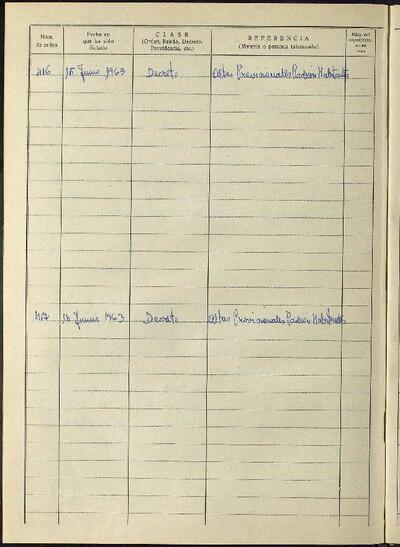 Núm. de orden
Fecha en que ha sido dictado
CLASE
(Orden, Bando, Decreto, Providencia, etc.)
REFERENCIA
(Materia o persona interesada)
Núm. del
416 15 Junio 1963 Decreto Altas Provisionales Padrón Habitantes
417 15 Junio 1963 Decreto Altas Provisionales Padrón Habitantes